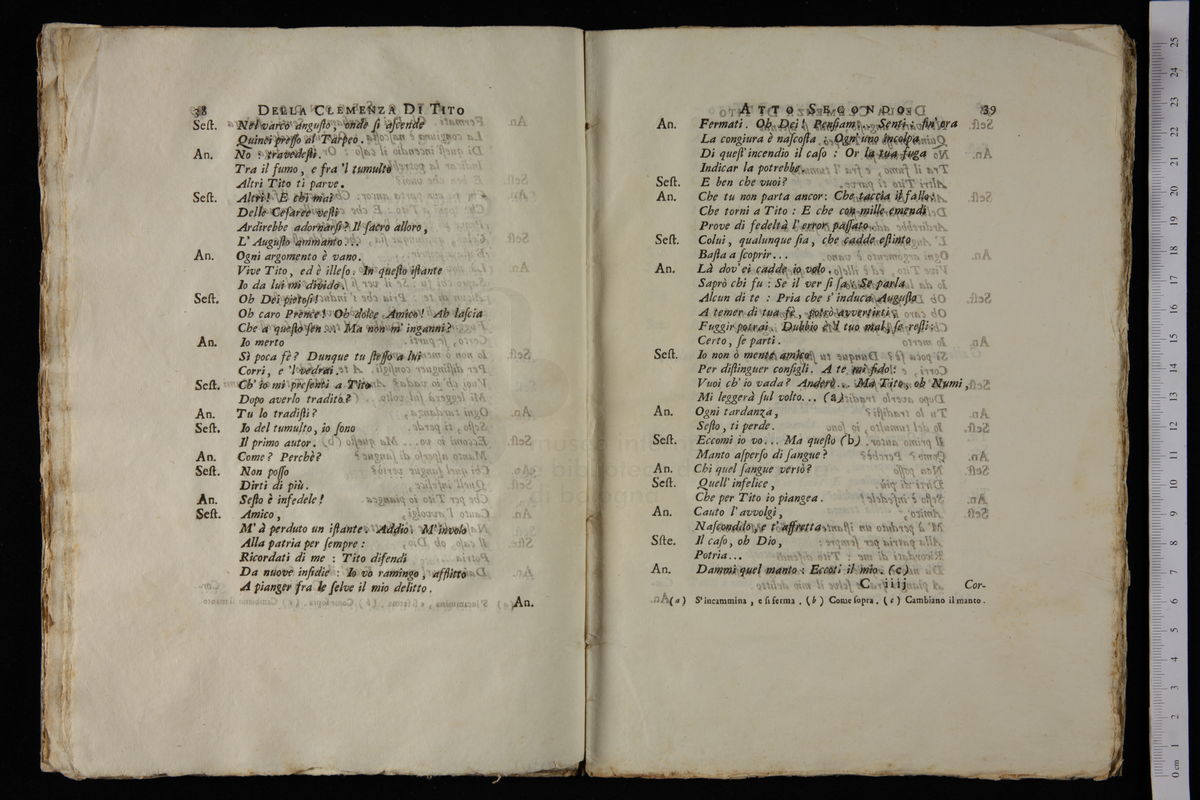 38 DELLA CLEMENZA DI TITO
Seſt. Nel varco anguſto, onde ſi aſcende
Quinci preſſo al Tarpeo.
An. No: travedeſti.
Tra il fumo, e fra 'l tumulto
Altri Tito ti parve.
Seſt. Altri! E chi mai
Delle Ceſaree veſti
Ardirebbe adornarſi? Il ſacro alloro,
L' Auguſto ammanto...
An. Ogni argomento è vano.
Vive Tito, ed è illeſo. In queſto iſtante
Io da lui mi divido.
Seſt. Oh Dei pietoſi!
Oh caro Prence! Oh dolce Amico! Ah laſcia
Che a queſto ſen ... Ma non m' inganni?
An. Io merto
Sì poca fè? Dunque tu ſteſſo a lui
Corri, e 'l vedrai.
Seſt. Ch' io mi preſenti a Tito
Dopo averlo tradito?
An. Tu lo tradiſti?
Seſt. Io del tumulto, io ſono
Il primo autor.
An. Come? Perchè?
Seſt. Non poſſo
Dirti di più.
An. Seſto è infedele!
Seſt. Amico,
M' à perduto un iſtante. Addio. M' involo
Alla patria per ſempre:
Ricordati di me: Tito difendi
Da nuove inſidie: Io vo ramingo, afflitto
A pianger fra le ſelve il mio delitto.
An.
ATTO SECONDO 39
An. Fermati. Oh Dei! Penſiam... Senti: fin' ora
La congiura è naſcoſta: Ogn' uno incolpa
Di queſt' incendio il caſo: Or la tua fuga
Indicar la potrebbe.
Seſt. E ben che vuoi?
An. Che tu non parta ancor: Che taccia il fallo:
Che torni a Tito: E che con mille emendi
Prove di fedeltà l' error paſſato.
Seſt. Colui, qualunque ſia, che cadde eſtinto
Baſta a ſcoprir...
An. Là dov' ei cadde io volo.
Saprò chi fu: Se il ver ſi ſa: Se parla
Alcun di te: Pria che s' induca Auguſto
A temer di tua fè, potrò avvertirti:
Fuggir potrai. Dubbio è 'l tuo mal, ſe reſti:
Certo, ſe parti.
Seſt. Io non ò mente amico
Per diſtinguer conſigli. A te mi fido:
Vuoi ch' io vada? Anderò... Ma Tito, oh Numi,
Mi leggerà ſul volto... (a)
An. Ogni tardanza,
Seſto, ti perde.
Seſt. Eccomi io vo... Ma queſto (b)
Manto aſperſo di ſangue?
An. Chi quel ſangue versò?
Seſt. Quell' infelice,
Che per Tito io piangea.
An. Cauto l' avvolgi,
Naſcondilo, e t' affretta.
Sſte. Il caſo, oh Dio,
Potria...
An. Dammi quel manto: Eccoti il mio. (c)
C iiij Cor-
(a) S'incammina, e ſi ferma. (b) Come ſopra. (c) Cambiano il manto.